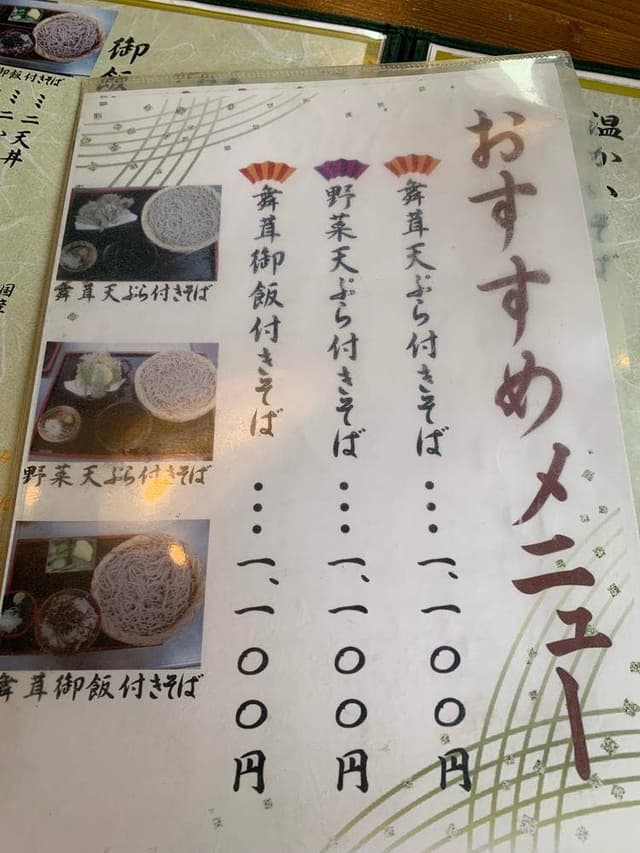 おすすめメニュー
舞茸天ぷら付きそば…一、一〇〇円
野菜天ぷら付きそば…一、一〇〇円
舞茸御飯付きそば…一、一〇〇円
舞茸天ぷら付きそば
野菜天ぷら付きそば
舞茸御飯付きそば
温かいそば
御飯
御飯付きそば
ミニ天丼
国産